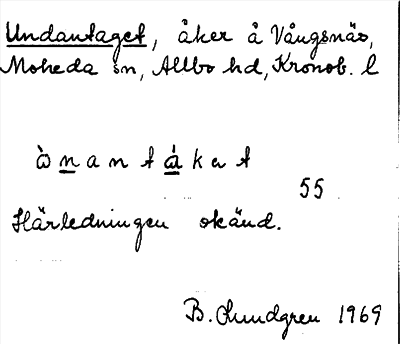 Undantaget, åker å Vångsnäs,
Moheda sn, Allbo hd, Kronob. l
ὼ n a n t á k e t
55
Härledningen okänd.
B. Lundgren 1969